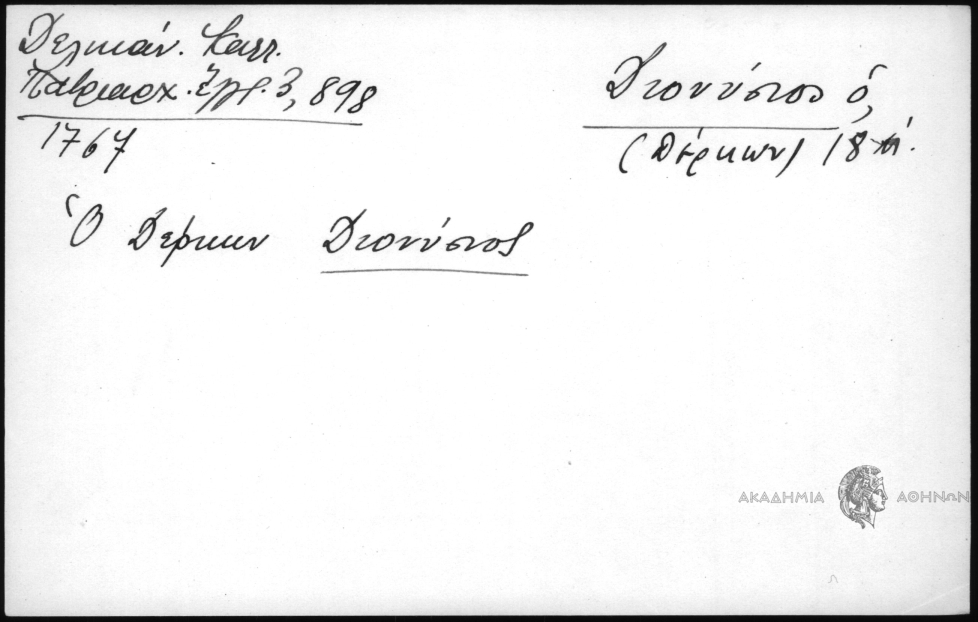 Δελικάν. Καλλ.
Πατριαρχ. Ἔγγρ. 3, 898
1767
Διονύσιος ὁ,
(Δέρκων) 18
Ὁ Δέρκων Διονύσιος
ΑΚΑΔΗΜΙΑ ΑΘΗΝΩΝ